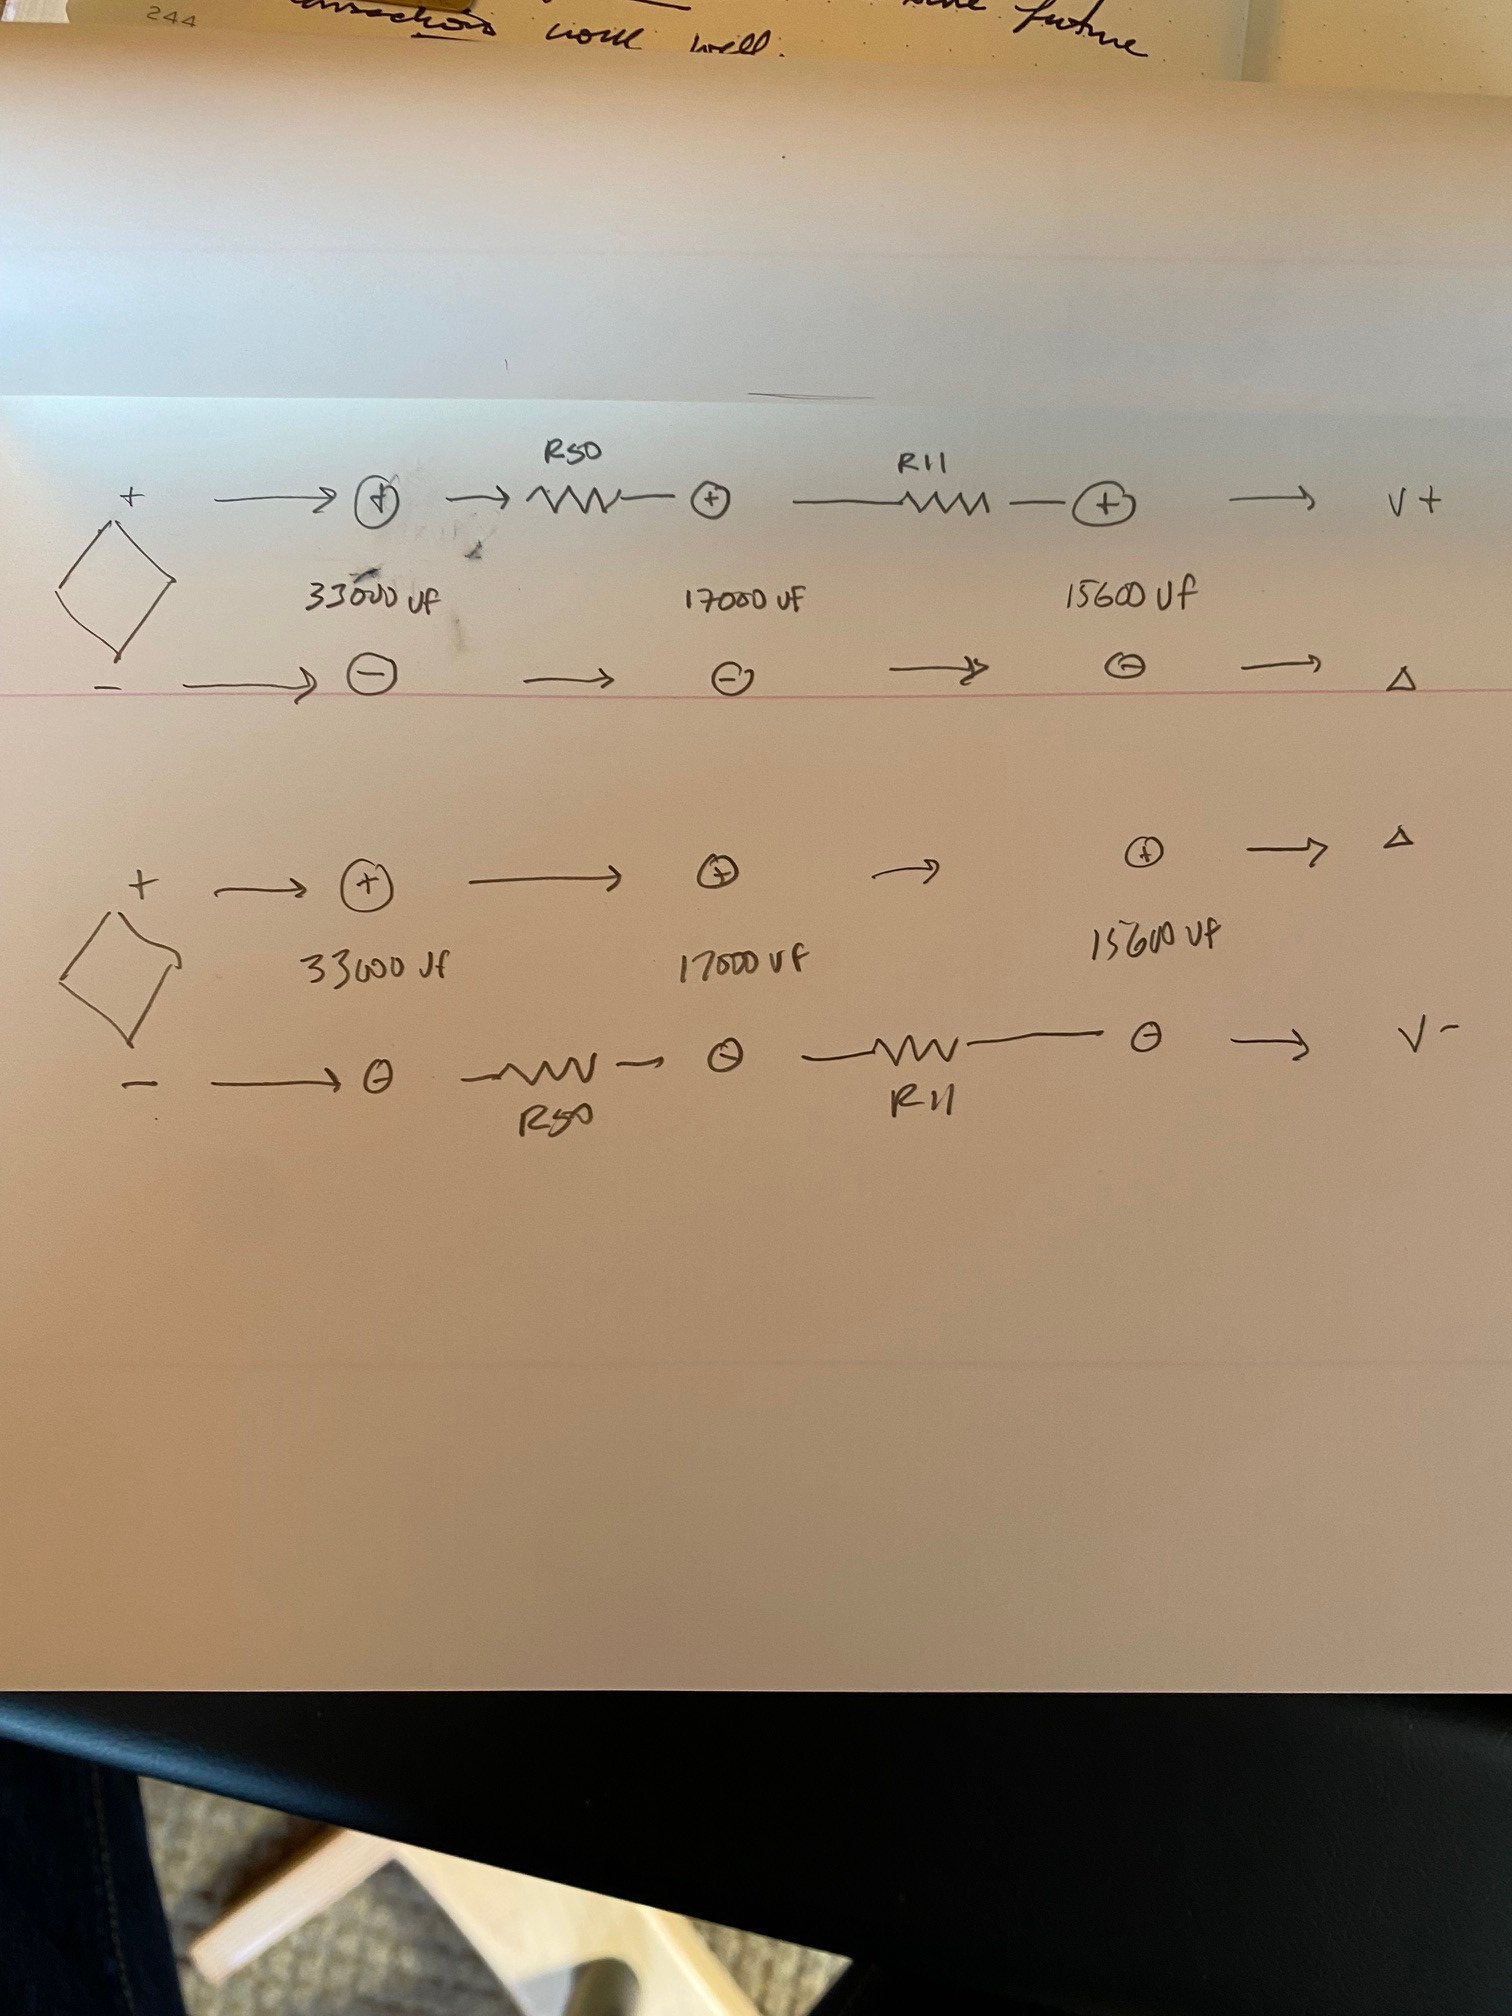 244
work well.
future
R50 R11
+ + + + V+
33000 uf 17000 uf 15600 uf
- - - - Δ
+ + + + Δ
33000 uf 17000 uf 15600 uf
- - - - V-
R50 R11